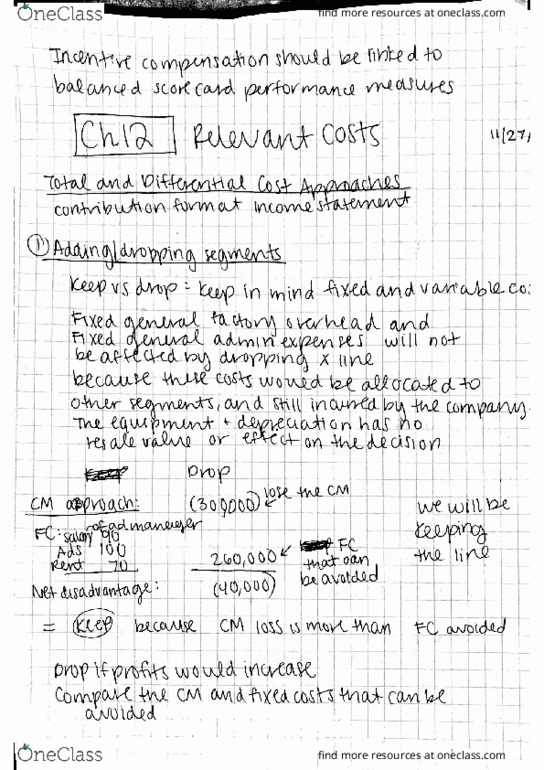 OneClass
find more resources at oneclass.com
Incentive compensation should be linked to
balanced scorecard performance measures
Ch12 Relevant Costs 11/27/
Total and Differential Cost Approaches
contribution format income statement
① Adding/dropping segments
Keep vs drop = keep in mind fixed and variable co
Fixed general factory overhead and
Fixed general admin expenses will not
be affected by dropping x line
because these costs would be allocated to
other segments, and still incurred by the company.
The equipment + depreciation has no
resale value or effect on the decision
Drop
CM approach: (300,000) lose the CM
we will be
keeping
the line
FC: salary 90 of ad manager
Ads 100
Rent 70
260,000 FC
that can
be avoided
Net disadvantage: (40,000)
= Keep because CM loss is more than FC avoided
Drop if profits would increase
Compare the CM and fixed costs that can be
avoided
OneClass
find more resources at oneclass.com